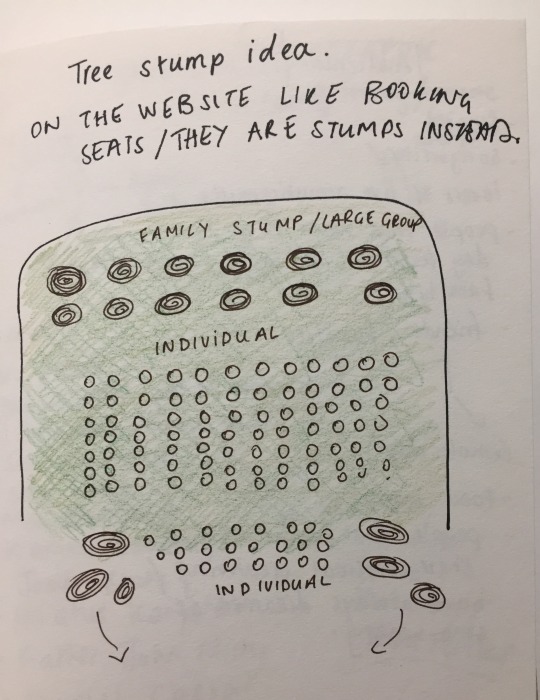 Tree stump idea.
ON THE WEBSITE LIKE BOOKING
SEATS / THEY ARE STUMPS INSTEAD.
FAMILY STUMP / LARGE GROUP
INDIVIDUAL
INDIVIDUAL